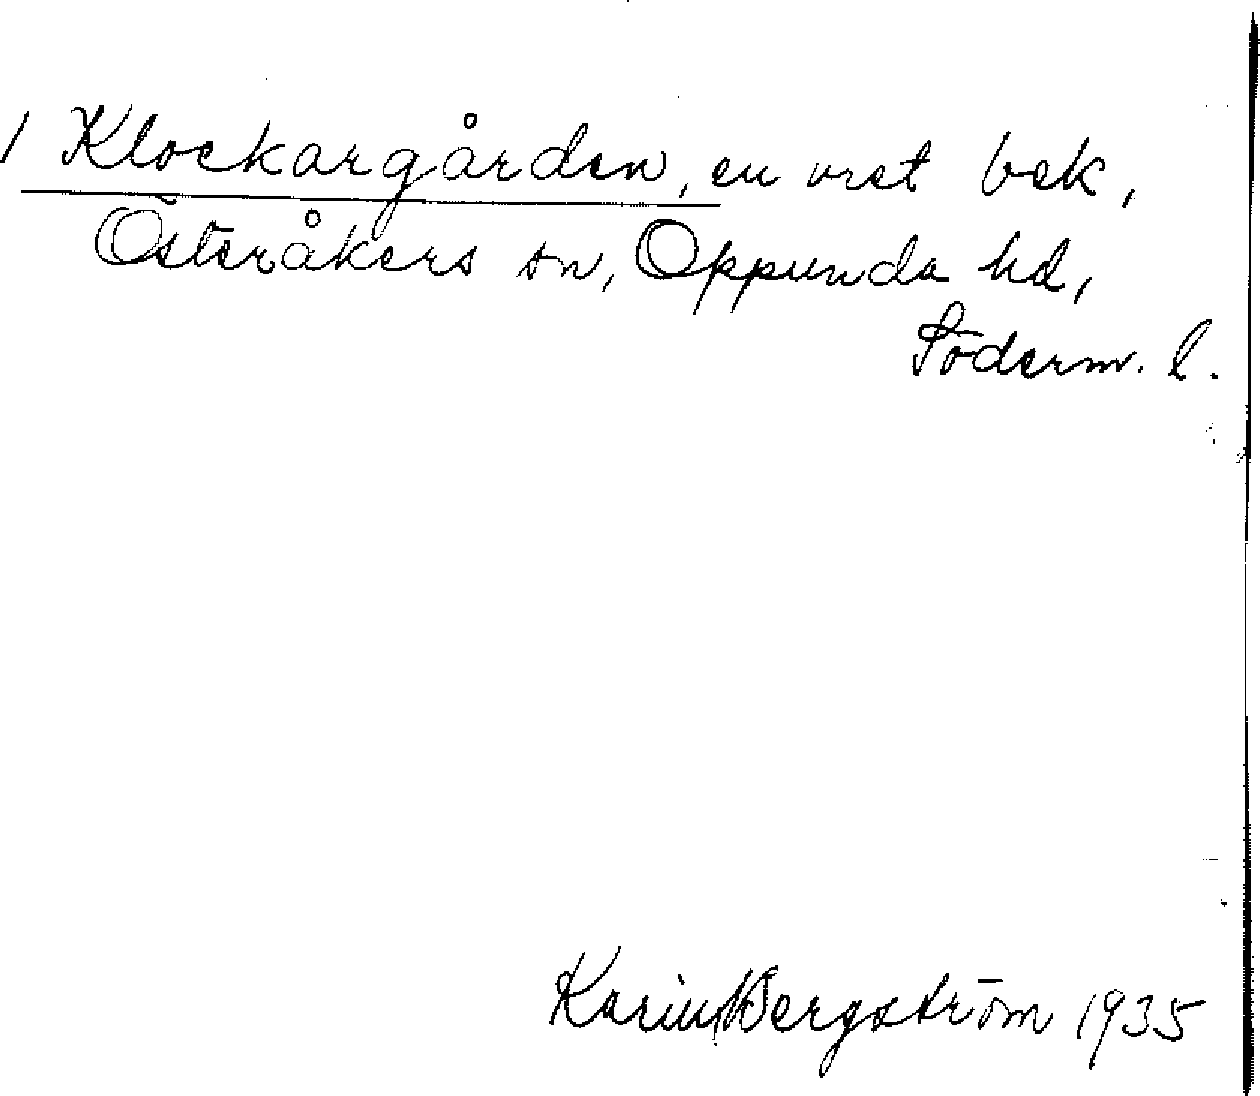 1 Klockargården, en vret bek,
Österåkers sn, Oppunda hd,
Söderm. l.
Karin Bergström 1935